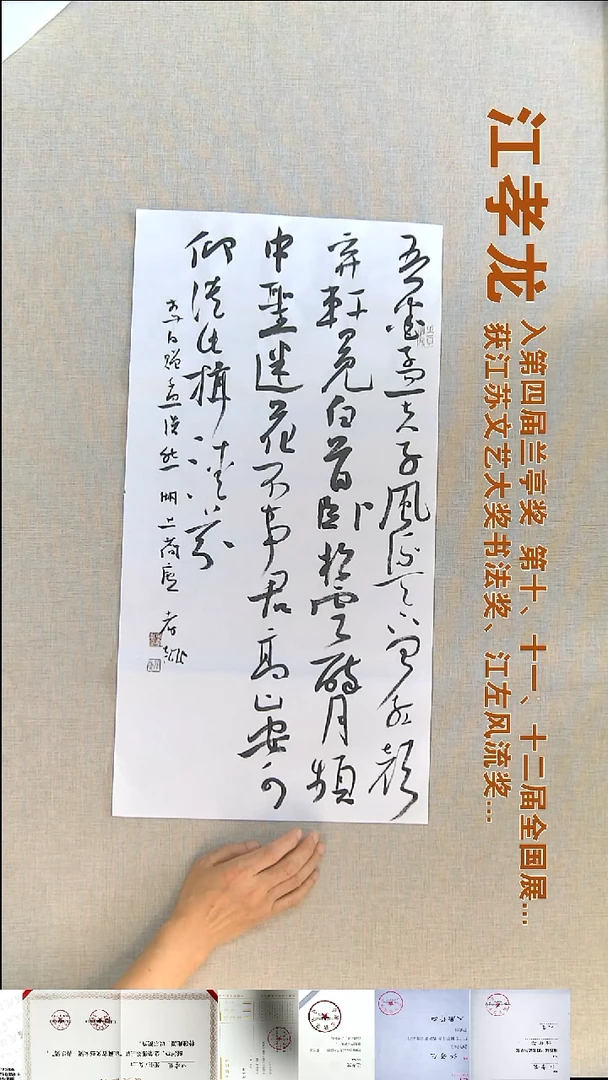 江孝龙
入第四届兰亭奖 第十、十一、十二届全国展...
获江苏文艺大奖书法奖、江左风流奖...
吾愛孟夫子風流天下聞紅顔
弃軒冕白首卧松雲醉月頻
中聖迷花不事君高山安可
仰徒此揖清芬
李白贈孟浩然 湖上 孝龍